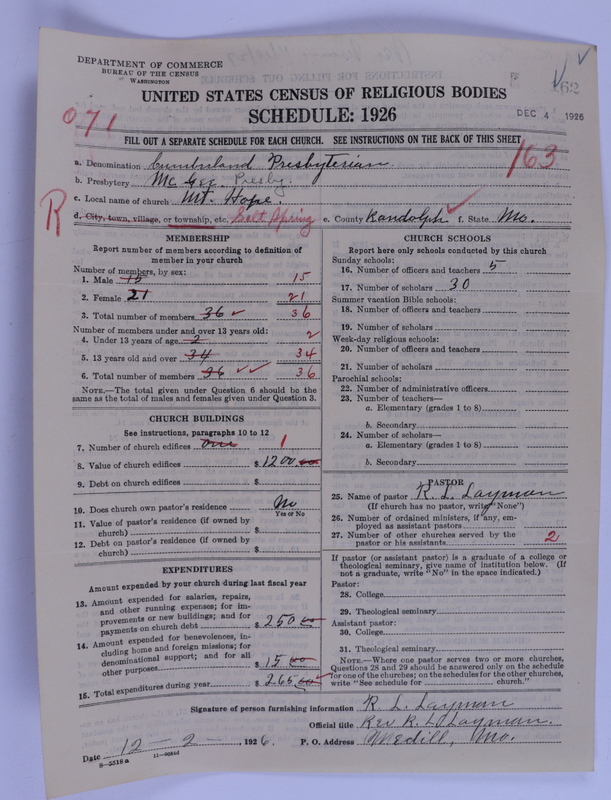 DEPARTMENT OF COMMERCE
BUREAU OF THE CENSUS
WASHINGTON
UNITED STATES CENSUS OF RELIGIOUS BODIES
SCHEDULE: 1926
DEC 4 1926
071
FILL OUT A SEPARATE SCHEDULE FOR EACH CHURCH. SEE INSTRUCTIONS ON THE BACK OF THIS SHEET
163
a. Denomination Cumberland Presbyterian
b. Presbytery Mc Gee Presby.
c. Local name of church Mt. Hope.
R
d. City, town, village, or township, etc. Salt Spring e. County Randolph f. State Mo.
MEMBERSHIP
Report number of members according to definition of member in your church
Number of members, by sex:
1. Male 15 15
2. Female 21 21
3. Total number of members 36 36
Number of members under and over 13 years old:
4. Under 13 years of age 2 2
5. 13 years old and over 34 34
6. Total number of members 36 36
NOTE.—The total given under Question 6 should be the same as the total of males and females given under Question 3.
CHURCH BUILDINGS
See instructions, paragraphs 10 to 12
7. Number of church edifices one 1
8. Value of church edifices $1200.00
9. Debt on church edifices $
10. Does church own pastor's residence No
Yes or No
11. Value of pastor's residence (if owned by church) $
12. Debt on pastor's residence (if owned by church) $
EXPENDITURES
Amount expended by your church during last fiscal year
13. Amount expended for salaries, repairs, and other running expenses; for improvements or new buildings; and for payments on church debt $250.00
14. Amount expended for benevolences, including home and foreign missions; for denominational support; and for all other purposes $15.00
15. Total expenditures during year $265.00
CHURCH SCHOOLS
Report here only schools conducted by this church
Sunday schools:
16. Number of officers and teachers 5
17. Number of scholars 30
Summer vacation Bible schools:
18. Number of officers and teachers
19. Number of scholars
Week-day religious schools:
20. Number of officers and teachers
21. Number of scholars
Parochial schools:
22. Number of administrative officers
23. Number of teachers—
a. Elementary (grades 1 to 8)
b. Secondary
24. Number of scholars—
a. Elementary (grades 1 to 8)
b. Secondary
PASTOR
25. Name of pastor R. L. Layman
(If church has no pastor, write "None")
26. Number of ordained ministers, if any, employed as assistant pastors
27. Number of other churches served by the pastor or his assistants 2
If pastor (or assistant pastor) is a graduate of a college or theological seminary, give name of institution below. (If not a graduate, write "No" in the space indicated.)
Pastor:
28. College
29. Theological seminary
Assistant pastor:
30. College
31. Theological seminary
NOTE.—Where one pastor serves two or more churches, Questions 28 and 29 should be answered only on the schedule for one of the churches; on the schedules for the other churches, write "See schedule for church."
Signature of person furnishing information R. L. Layman
Official title Rev R. L. Layman.
Date 12 - 2 - , 1926. P. O. Address Medill, Mo.
8-5518a